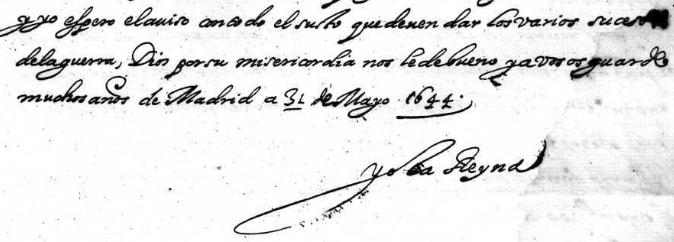 y yo espero el auiso con todo el susto que deuen dar los varios sucesos
de la guerra, Dios por su misericordia nos le de bueno y a vos os guarde
muchos años de Madrid a 31 de Mayo 1644.
Yo la Reyna